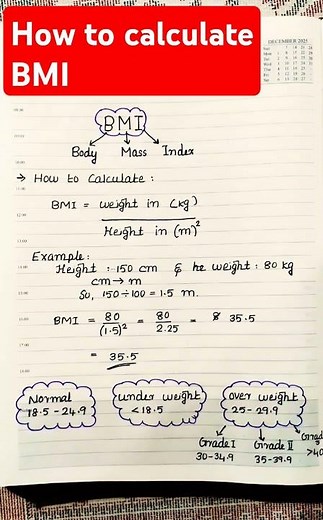 How to calculate
BMI
DECEMBER 2025
BMI
Body Mass Index
→ How to Calculate :
BMI = weight in (kg)
Height in (m)²
Example:
Height : 150 cm & he weight : 80 kg
cm → m
So, 150 ÷ 100 = 1.5 m.
BMI = 80 / (1.5)² = 80 / 2.25 = 35.5
= 35.5
Normal
18.5 - 24.9
under weight
< 18.5
over weight
25 - 29.9
Grade I
30-34.9
Grade II
35-39.9
Grad
>40